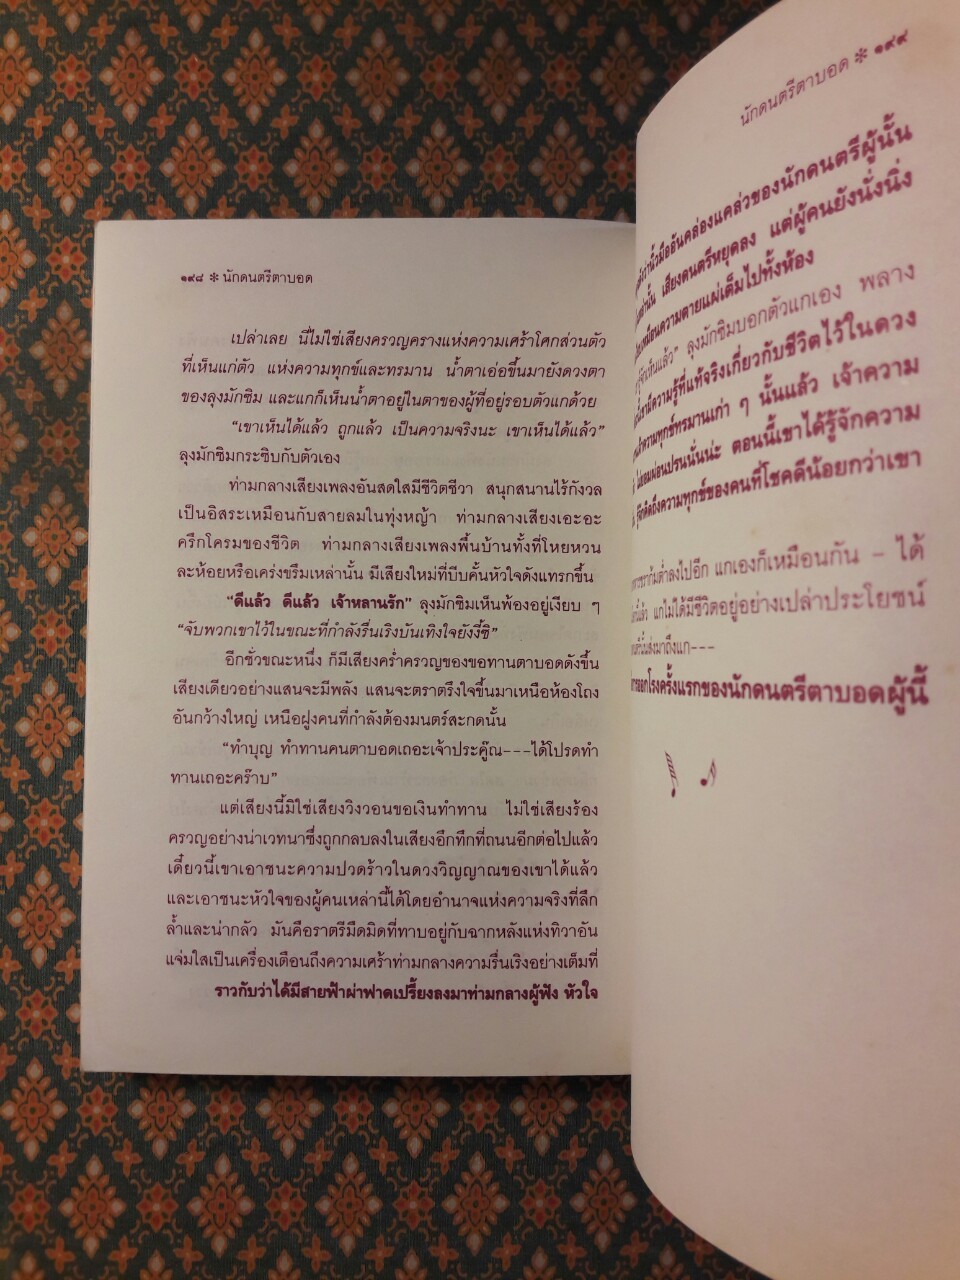 ๑๙๘ * นักดนตรีตาบอด
เปล่าเลย นี่ไม่ใช่เสียงครวญครางแห่งความเศร้าโศกส่วนตัว
ที่เห็นแก่ตัว แห่งความทุกข์และทรมาน น้ำตาเอ่อขึ้นมายังดวงตา
ของลุงมักซิม และแกก็เห็นน้ำตาอยู่ในตาของผู้ที่อยู่รอบตัวแกด้วย
“เขาเห็นได้แล้ว ถูกแล้ว เป็นความจริงนะ เขาเห็นได้แล้ว”
ลุงมักซิมกระซิบกับตัวเอง
ท่ามกลางเสียงเพลงอันสดใสมีชีวิตชีวา สนุกสนานไร้กังวล
เป็นอิสระเหมือนกับสายลมในทุ่งหญ้า ท่ามกลางเสียงเอะอะ
ครึกโครมของชีวิต ท่ามกลางเสียงเพลงพื้นบ้านทั้งที่โหยหวน
ละห้อยหรือเคร่งขรึมเหล่านั้น มีเสียงใหม่ที่บีบคั้นหัวใจดังแทรกขึ้น
“ดีแล้ว ดีแล้ว เจ้าหลานรัก” ลุงมักซิมเห็นพ้องอยู่เงียบ ๆ
“จับพวกเขาไว้ในขณะที่กำลังรื่นเริงบันเทิงใจยังงี้ซิ”
อีกชั่วขณะหนึ่ง ก็มีเสียงคร่ำครวญของขอทานตาบอดดังขึ้น
เสียงเดียวอย่างแสนจะมีพลัง แสนจะตราตรึงใจขึ้นมาเหนือห้องโถง
อันกว้างใหญ่ เหนือฝูงคนที่กำลังต้องมนตร์สะกดนั้น
“ทำบุญ ทำทานคนตาบอดเถอะเจ้าประคู๊ณ---ได้โปรดทำ
ทานเถอะคร๊าบ”
แต่เสียงนี้มิใช่เสียงวิงวอนขอเงินทำทาน ไม่ใช่เสียงร้อง
ครวญอย่างน่าเวทนาซึ่งถูกกลบลงในเสียงอึกทึกที่ถนนอีกต่อไปแล้ว
เดี๋ยวนี้เขาเอาชนะความปวดร้าวในดวงวิญญาณของเขาได้แล้ว
และเอาชนะหัวใจของผู้คนเหล่านี้ได้โดยอำนาจแห่งความจริงที่ลึก
ล้ำและน่ากลัว มันคือราตรีมืดมิดที่ทาบอยู่กับฉากหลังแห่งทิวาอัน
แจ่มใสเป็นเครื่องเตือนถึงความเศร้าท่ามกลางความรื่นเริงอย่างเต็มที่
ราวกับว่าได้มีสายฟ้าผ่าฟาดเปรี้ยงลงมาท่ามกลางผู้ฟัง หัวใจ
นักดนตรีตาบอด * ๑๙๙
นิ้วมืออันคล่องแคล่วของนักดนตรีผู้นั้น
เสียงดนตรีหยุดลง แต่ผู้คนยังนั่งนิ่ง
เหมือนความตายแผ่เต็มไปทั้งห้อง
ลุงมักซิมบอกตัวแกเอง พลาง
ความรู้ที่แท้จริงเกี่ยวกับชีวิตไว้ในดวง
ความทุกข์ทรมานเก่า ๆ นั้นแล้ว เจ้าความ
ไม่ยอมผ่อนปรนนั้นน่ะ ตอนนี้เขาได้รู้จักความ
รู้จักคิดถึงความทุกข์ของคนที่โชคดีน้อยกว่าเขา
ก้มต่ำลงไปอีก แกเองก็เหมือนกัน - ได้
แล้ว แกไม่ได้มีชีวิตอยู่อย่างเปล่าประโยชน์
ส่งมาถึงแก---
ออกโรงครั้งแรกของนักดนตรีตาบอดผู้นี้